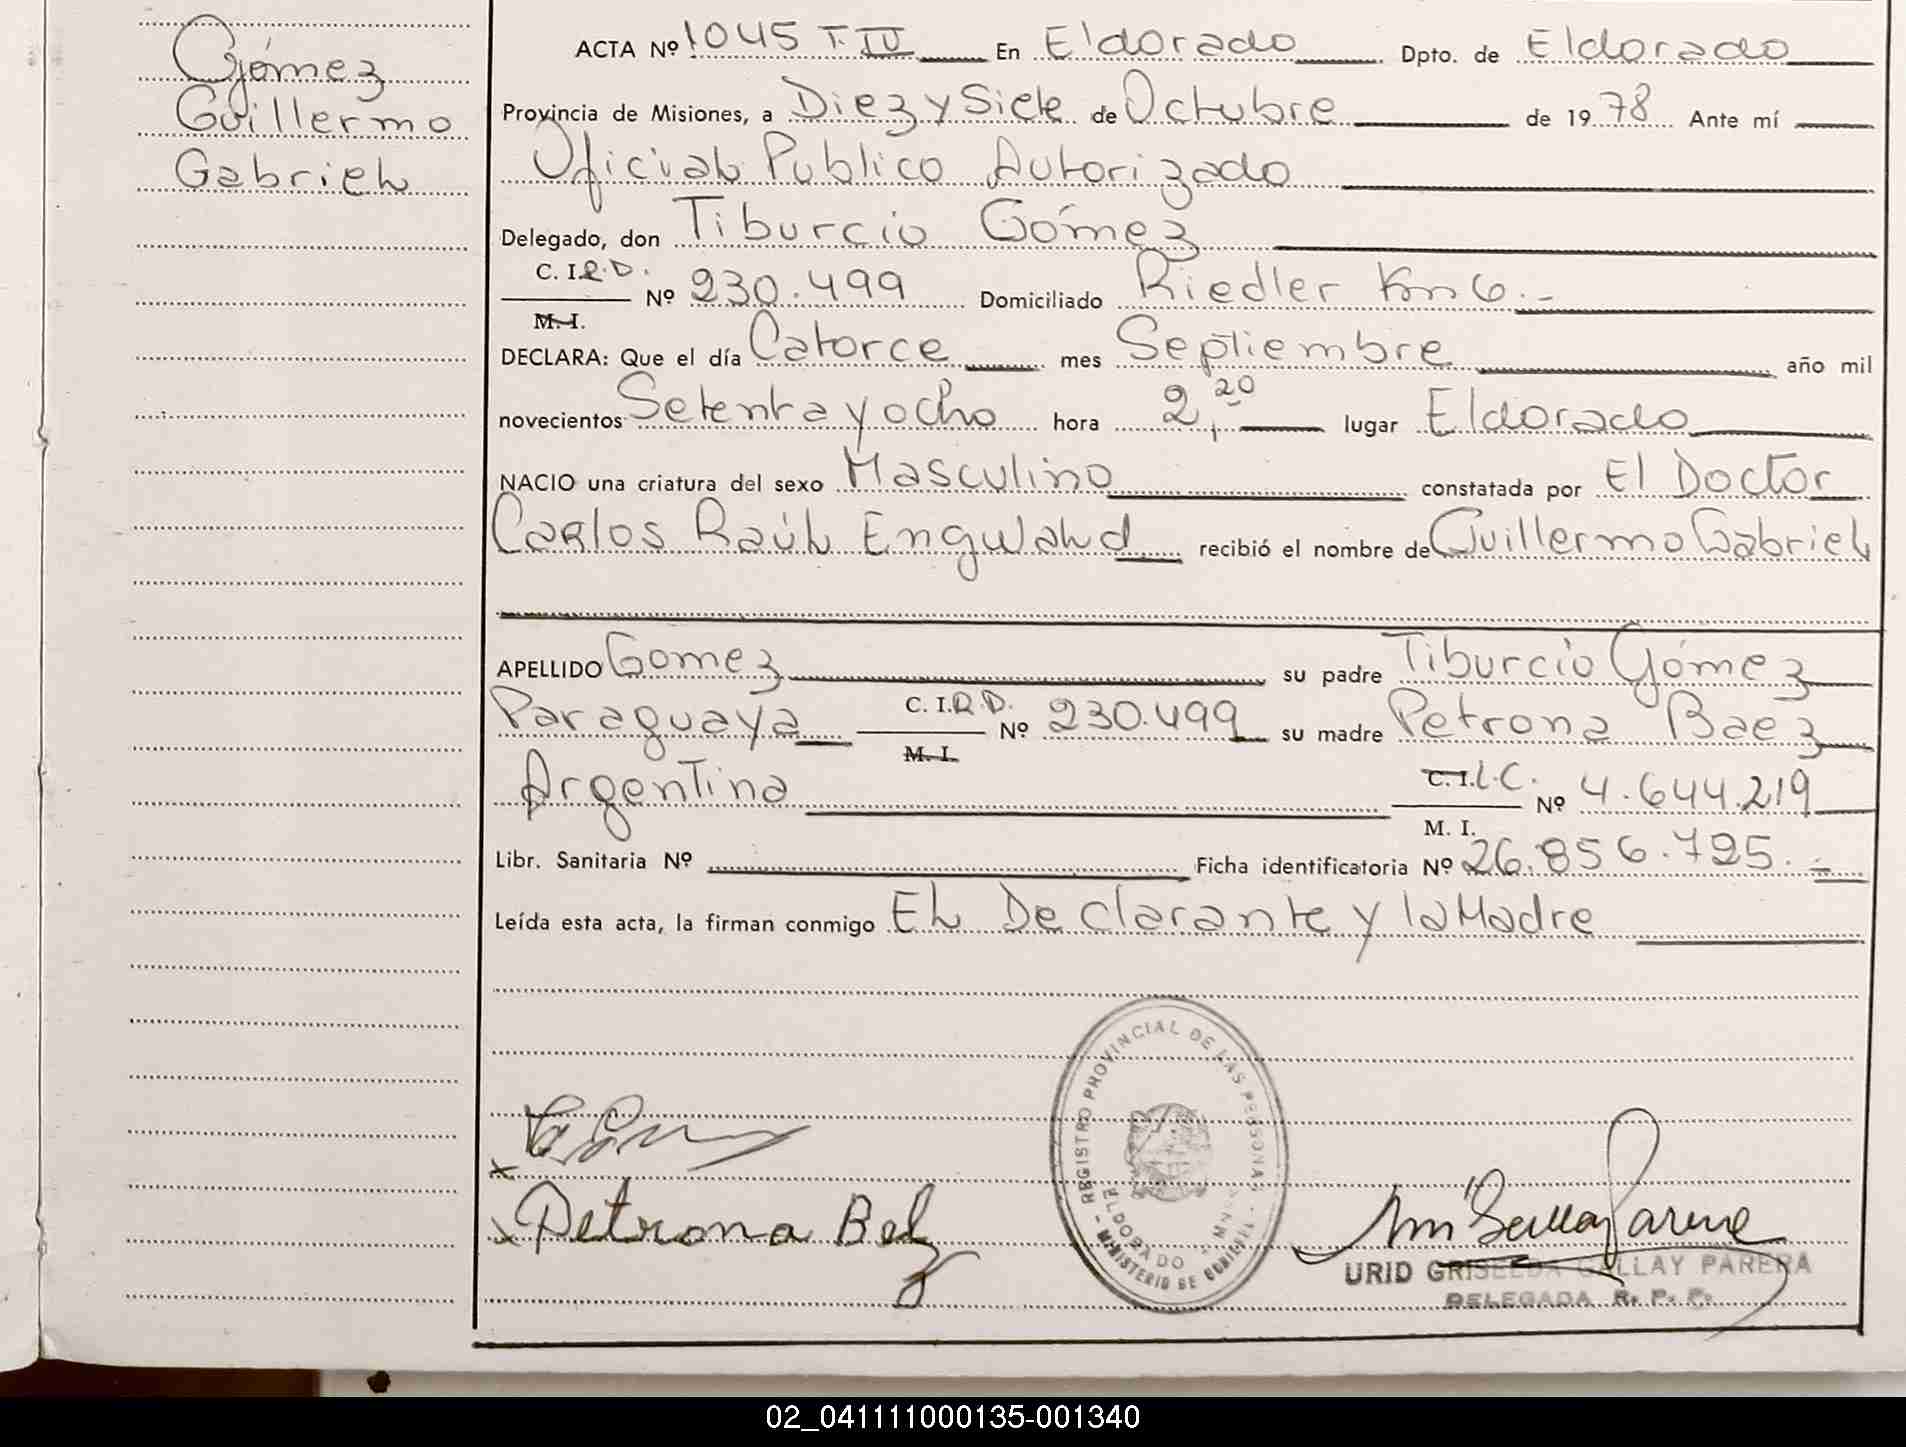 Gómez
Guillermo
Gabriel
ACTA Nº 1045 T. IV En Eldorado Dpto. de Eldorado
Provincia de Misiones, a Diez y Siete de Octubre de 1978 Ante mí
Oficial Publico Autorizado
Delegado, don Tiburcio Gómez
C. I.R.D.
Nº 230.499 Domiciliado Riedler Km 6.-
M. I.
DECLARA: Que el día Catorce mes Septiembre año mil
novecientos Setenta y ocho hora 2,20 lugar Eldorado
NACIO una criatura del sexo Masculino constatada por El Doctor
Carlos Raúl Engwald recibió el nombre de Guillermo Gabriel
APELLIDO Gomez su padre Tiburcio Gómez
Paraguaya C. I.R.D. Nº 230.499 su madre Petrona Baez
M. I.
Argentina C. I. L.C. Nº 4.644.219
M. I.
Libr. Sanitaria Nº Ficha identificatoria Nº 26.856.795.-
Leída esta acta, la firman conmigo El Declarante y la Madre
REGISTRO PROVINCIAL DE LAS PERSONAS
ELDORADO
MINISTERIO DE GOBIERNO
x
x Petrona Baez
URID GRISELDA GALLAY PARERA
DELEGADA R. P. P.
02_041111000135-001340